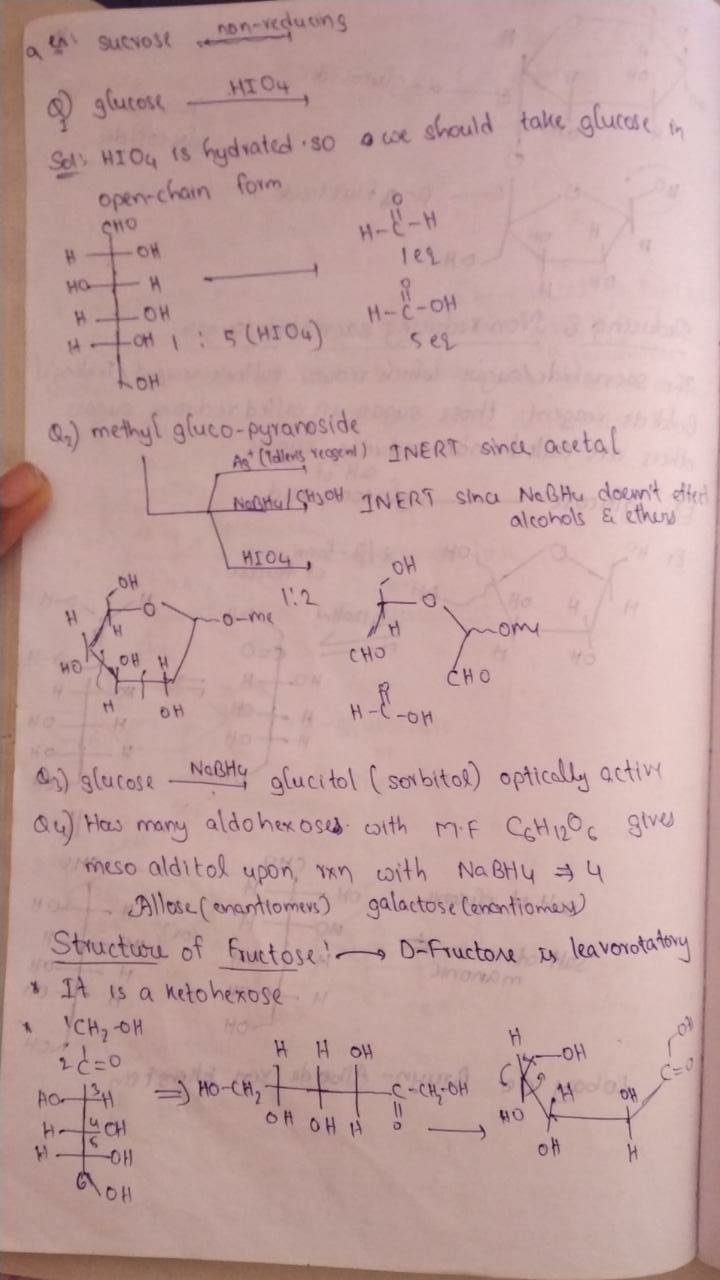 a ex: sucrose non-reducing
Q1) glucose HIO4
Sol: HIO4 is hydrated so we should take glucose in
open-chain form
CHO
H OH
HO H
H OH
H OH 1 : 5 (HIO4)
OH
O
H-C-H
1eq
O
H-C-OH
5eq
Q2) methyl gluco-pyranoside
Ag+ (Tollens reagent) INERT since acetal
NaBH4/CH3OH INERT since NaBH4 doesn't effect
alcohols & ethers
HIO4
1:2
OH
H O O-me
H
HO OH H
H OH
OH
O
H OMe
CHO
CHO
O
H-C-OH
Q3) glucose NaBH4 glucitol (sorbitol) optically active
Q4) How many aldohexoses with M.F C6H12O6 gives
meso alditol upon rxn with NaBH4 ⇒ 4
Allose (enantiomers) galactose (enantiomers)
Structure of Fructose! → D-Fructose is leavorotatory
* It is a ketohexose
* 1CH2-OH
2C=O
HO 3 H
H 4 OH
H 5 OH
6 OH
⇒ H H OH
HO-CH2 C-CH2-OH
OH OH H O
→
H OH
C OH
HO H OH C=O
OH H